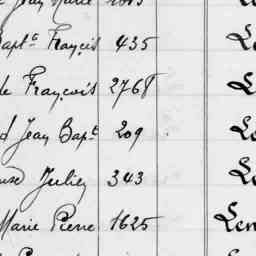 Jean Marie
Bapt.e Françcis 435 Le
de François 2768 L
d Jean Bap.t 209 Le
Julien 343 Le
Marie Pierre 1625 Len